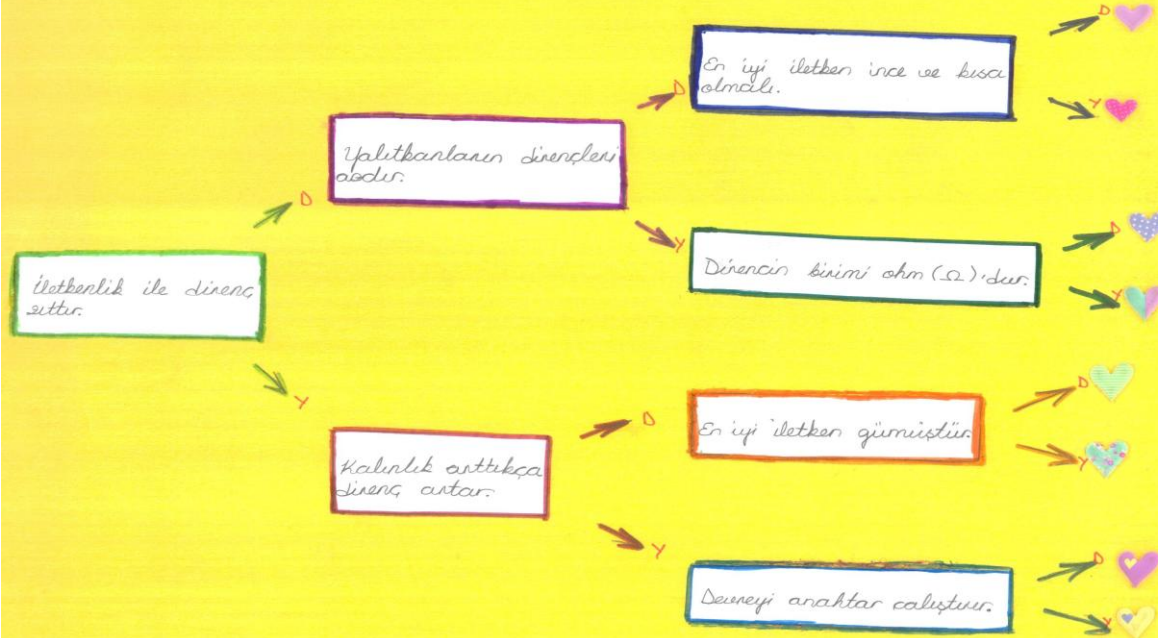 İletkenlik ile direnç
zıttır.
D
Y
Yalıtkanların dirençleri
azdır.
D
Y
Kalınlık arttıkça
direnç artar.
D
Y
En iyi iletken ince ve kısa
olmalı.
D
Y
Direncin birimi ohm (Ω)'dur.
D
Y
En iyi iletken gümüştür.
D
Y
Devreyi anahtar çalıştırır.
D
Y